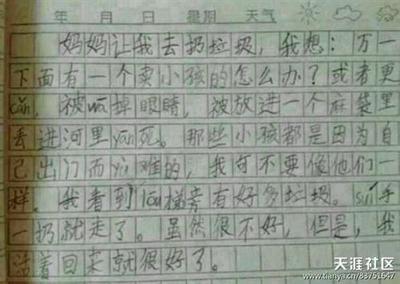 年 月 日 星期 天气
妈妈让我去扔垃圾，我想：万一
下面有一个卖小孩的怎么办？或者更
cǎn，被wā掉眼睛，被放进一个麻袋里
丢进河里yān死。那些小孩都是因为自
己出门而yù难的，我可不要像他们一
样。我看到lóu梯旁有好多垃圾。suí手
一扔就走了。虽然很不好，但是，我
活着回来就很好了。
天涯社区
www.tianya.cn/83751647